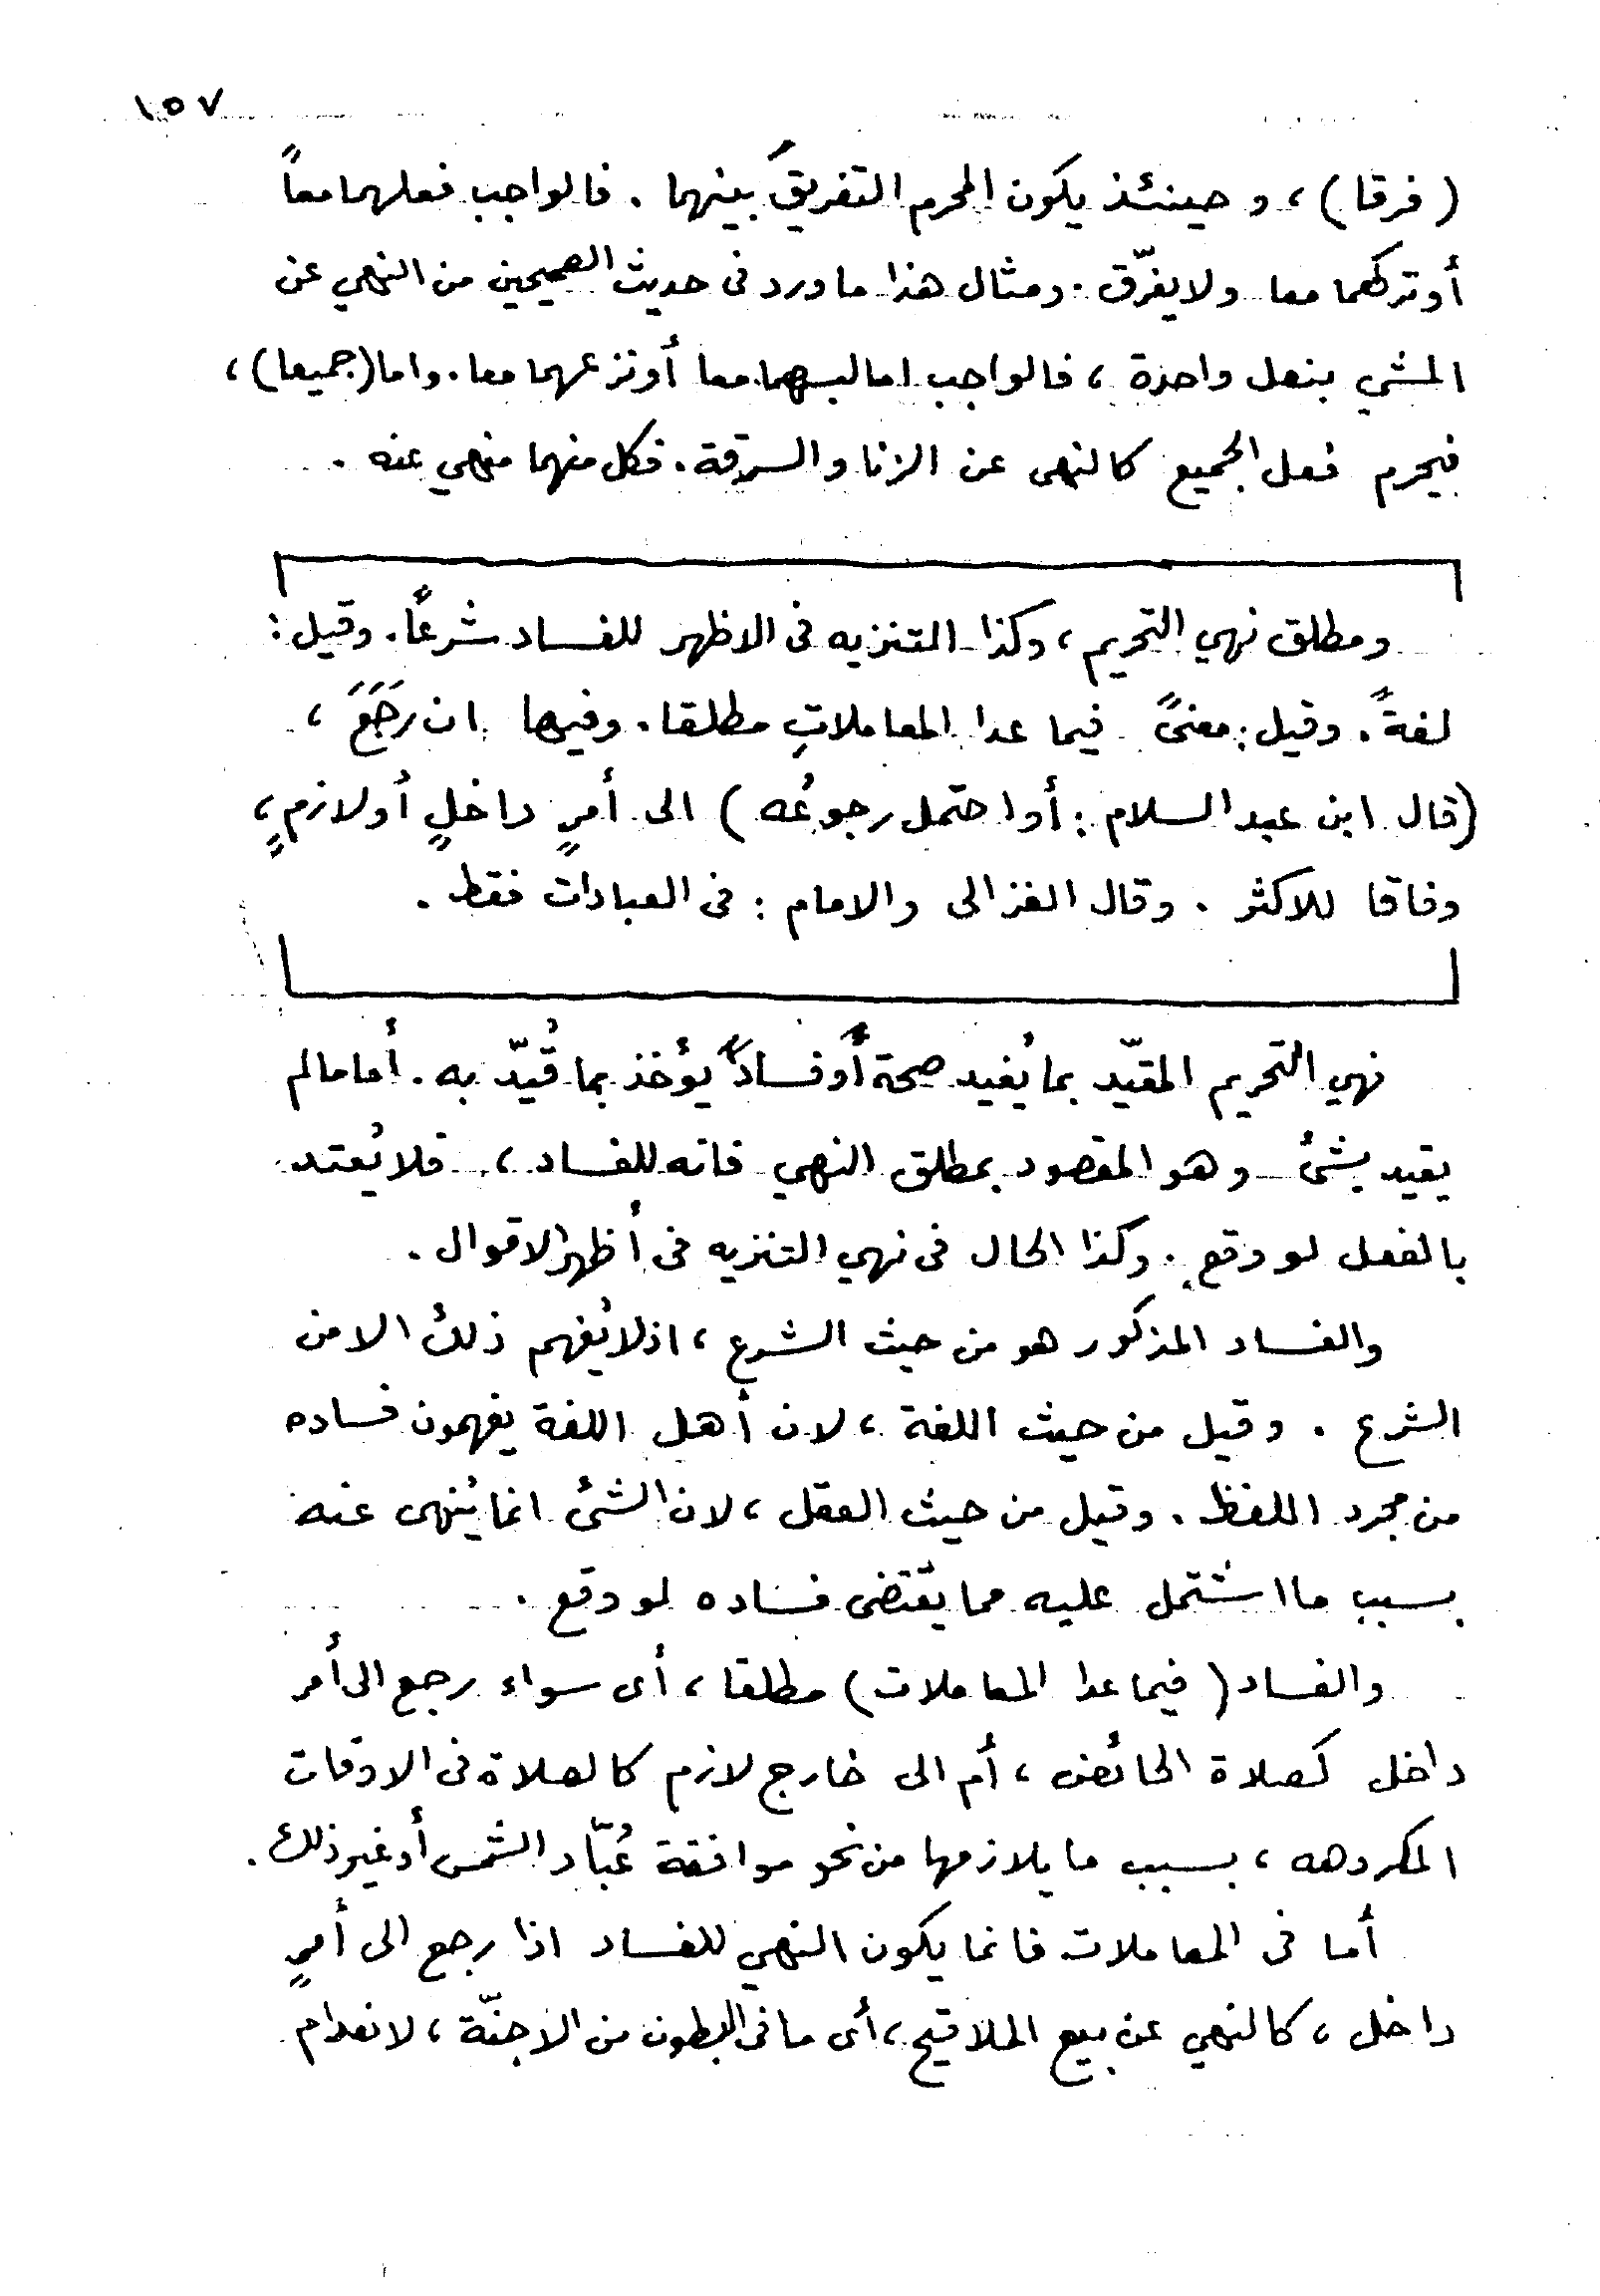 ١٥٧
(فرقا)، وحينئذ يكون المحرم التفريقَ بينهما. فالواجب فعلهما معاً
أو تركهما معا ولا يفرّق. ومثال هذا ما ورد فى حديث الصحيحين من النهي عن
المشي بنعل واحدة، فالواجب اما لبسهما معا أو نزعهما معا. واما (جميعا)،
فيحرم فعل الجميع كالنهى عن الزنا والسرقة. فكل منهما منهي عنه.
ومطلق نهي التحريم، وكذا التنزيه فى الاظهر للفساد شرعاً. وقيل:
لغةً. وقيل: معنىً فيما عدا المعاملاتِ مطلقا. وفيها ان رَجَعَ،
(قال ابن عبد السلام: أو احتمل رجوعُه) الى أمرٍ داخلٍ أو لازمٍ،
وفاقا للاكثر. وقال الغزالى والامام: فى العبادات فقط.
نهي التحريم المقيّد بما يُفيد صحة أو فساداً يؤخذ بما قُيّد به. أما مالم
يقيد بشئ وهو المقصود بمطلق النهي فانه للفساد، فلا يُعتد
بالفعل لو وقع. وكذا الحال فى نهي التنزيه فى أظهر الاقوال.
والفساد المذكور هو من حيث الشرع، اذ لا يُفهم ذلك الا من
الشرع. وقيل من حيث اللغة، لان أهل اللغة يفهمون فساده
من مجرد اللفظ. وقيل من حيث العقل، لان الشئ انما يُنهى عنه
بسبب ما اشتمل عليه مما يقتضى فساده لو وقع.
والفساد (فيما عدا المعاملات) مطلقا، أى سواء رجع الى أمر
داخل كصلاة الحائض، أم الى خارج لازم كالصلاة فى الاوقات
المكروهه، بسبب ما يلازمها من نحو موافقة عُبّاد الشمس أو غير ذلك.
أما فى المعاملات فانما يكون النهي للفساد اذا رجع الى أمرٍ
داخل، كالنهي عن بيع الملاقيح، أى ما فى البطون من الاجنّة، لانعدام